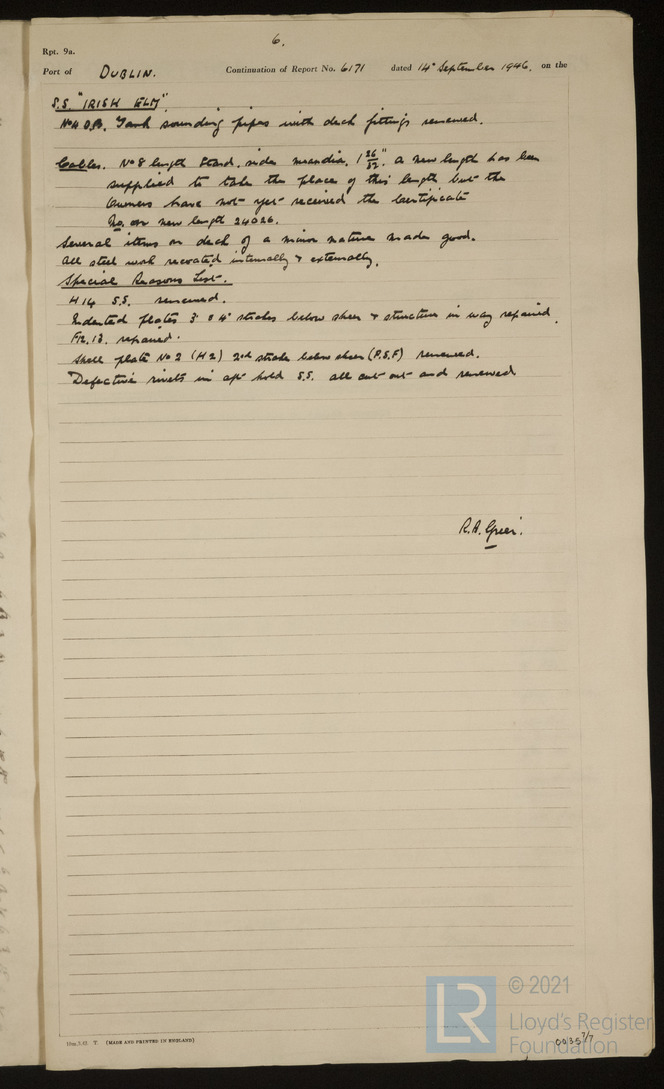 6.
Rpt. 9a.
Port of DUBLIN. Continuation of Report No. 6171 dated 14th September 1946. on the
S.S. "IRISH ELM".
No 4 D.B. Tank sounding pipes with deck fittings renewed.
Cables. No 8 length Stard. side mean dia. 1 26/32". A new length has been
supplied to take the place of this length but the
Owners have not yet received the Certificate
No. on new length 24026.
Several items on deck of a minor nature made good.
All steel work recoated internally & externally.
Special Reasons List.
H 14 S.S. renewed.
Indented plates 3rd & 4th strakes below sheer & structure in way repaired.
Fr. 13. repaired.
Shell plate No 2 (H2) 2nd strake below sheer (P.S.F) renewed.
Defective rivets in aft hold S.S. all cut out and renewed
R.A. Greer.
10m.3.45 T. (MADE AND PRINTED IN ENGLAND)
0035 7/7
LR
© 2021
Lloyd's Register
Foundation